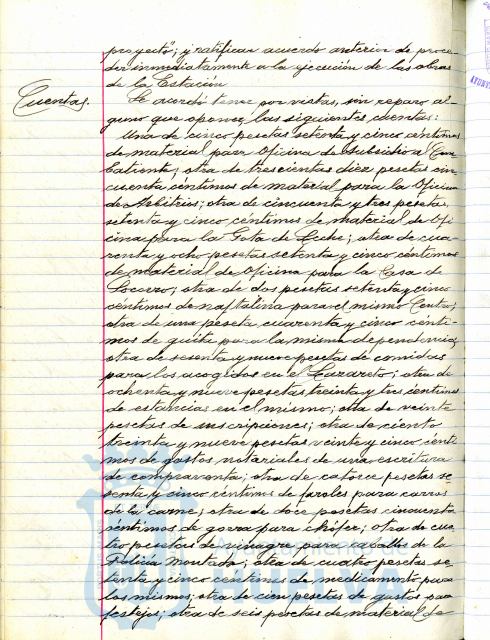 proyecto"; y ratificar acuerdo anterior de proce-
der inmediatamente a la ejecución de las obras
de la Estación
Cuentas.
Se acordó tener por vistas, sin reparo al-
guno que oponer, las siguientes cuentas:
Una de cinco pesetas setenta y cinco céntimos
de material para Oficina de Subsidio al Com
batiente; otra de trescientas diez pesetas cin
cuenta céntimos de material para la Oficina
de Arbitrios; otra de cincuenta y tres pesetas
setenta y cinco céntimos de material de Ofi
cina para la Gota de Leche; otra de cua-
renta y ocho pesetas setenta y cinco céntimos
de material de Oficina para la Casa de
Socorro; otra de dos pesetas setenta y cinco
céntimos de naftalina para el mismo Centro;
otra de una peseta cuarenta y cinco cénti-
mos de guita para la misma dependencia;
otra de sesenta y nueve pesetas de comidas
para los acogidos en el Lazareto; otra de
ochenta y nueve pesetas treinta y tres céntimos
de estancias en el mismo; otra de veinte
pesetas de suscripciones; otra de ciento
treinta y nueve pesetas veinte y cinco cénti
mos de gastos notariales de una escritura
de compraventa; otra de catorce pesetas se
senta y cinco céntimos de faroles para carros
de la carne; otra de doce pesetas cincuenta
céntimos de gorra para chófer; otra de cua
tro pesetas de vinagre para caballos de la
Policía montada; otra de cuatro pesetas se
tenta y cinco céntimos de medicamento para
los mismos; otra de cien pesetas de gastos para
festejos; otra de seis pesetas de material de
Ayuntamiento de